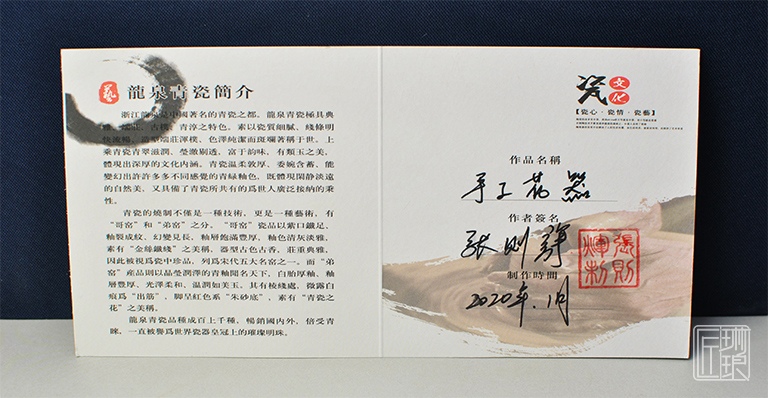 藝
龍泉青瓷簡介
浙江龍泉是中國著名的青瓷之都。龍泉青瓷極具典
青淳之特色。素以瓷質細膩、綫條明
色澤純潔而斑斕著稱于世。上
乘青瓷青翠滋潤、瑩澈剔透，富于韵味，有類玉之美，
體現出深厚的文化内涵。青瓷温柔敦厚、委婉含蓄，能
變幻出許許多多不同感覺的青緑釉色，既體現閑静淡遠
的自然美，又具備了青瓷所共有的爲世人廣泛接納的秉
性。
青瓷的燒制不僅是一種技術，更是一種藝術，有
“哥窑”和“弟窑”之分。“哥窑”瓷品以紫口鐵足、
釉裂成紋、幻變見長，釉層飽滿豐厚，釉色清灰淡雅，
素有“金絲鐵綫”之美稱，器型古色古香，莊重典雅，
因此被視爲瓷中珍品，列爲宋代五大名窑之一。而“弟
窑”産品則以晶瑩潤澤的青釉聞名天下，白胎厚釉，釉
層豐厚、光澤柔和，温潤如美玉。具有棱綫處，微露白
痕爲“出筋”，脚呈紅色系“朱砂底”，素有“青瓷之
花”之美稱。
龍泉青瓷品種成百上千種，暢銷國内外，倍受青
睞，一直被譽爲世界瓷器皇冠上的璀璨明珠。
瓷文化
【瓷心·瓷情·瓷藝】
作品名稱
花器
作者簽名
張則輝
張則輝制
制作時間
2020年.1月
琳琅匠